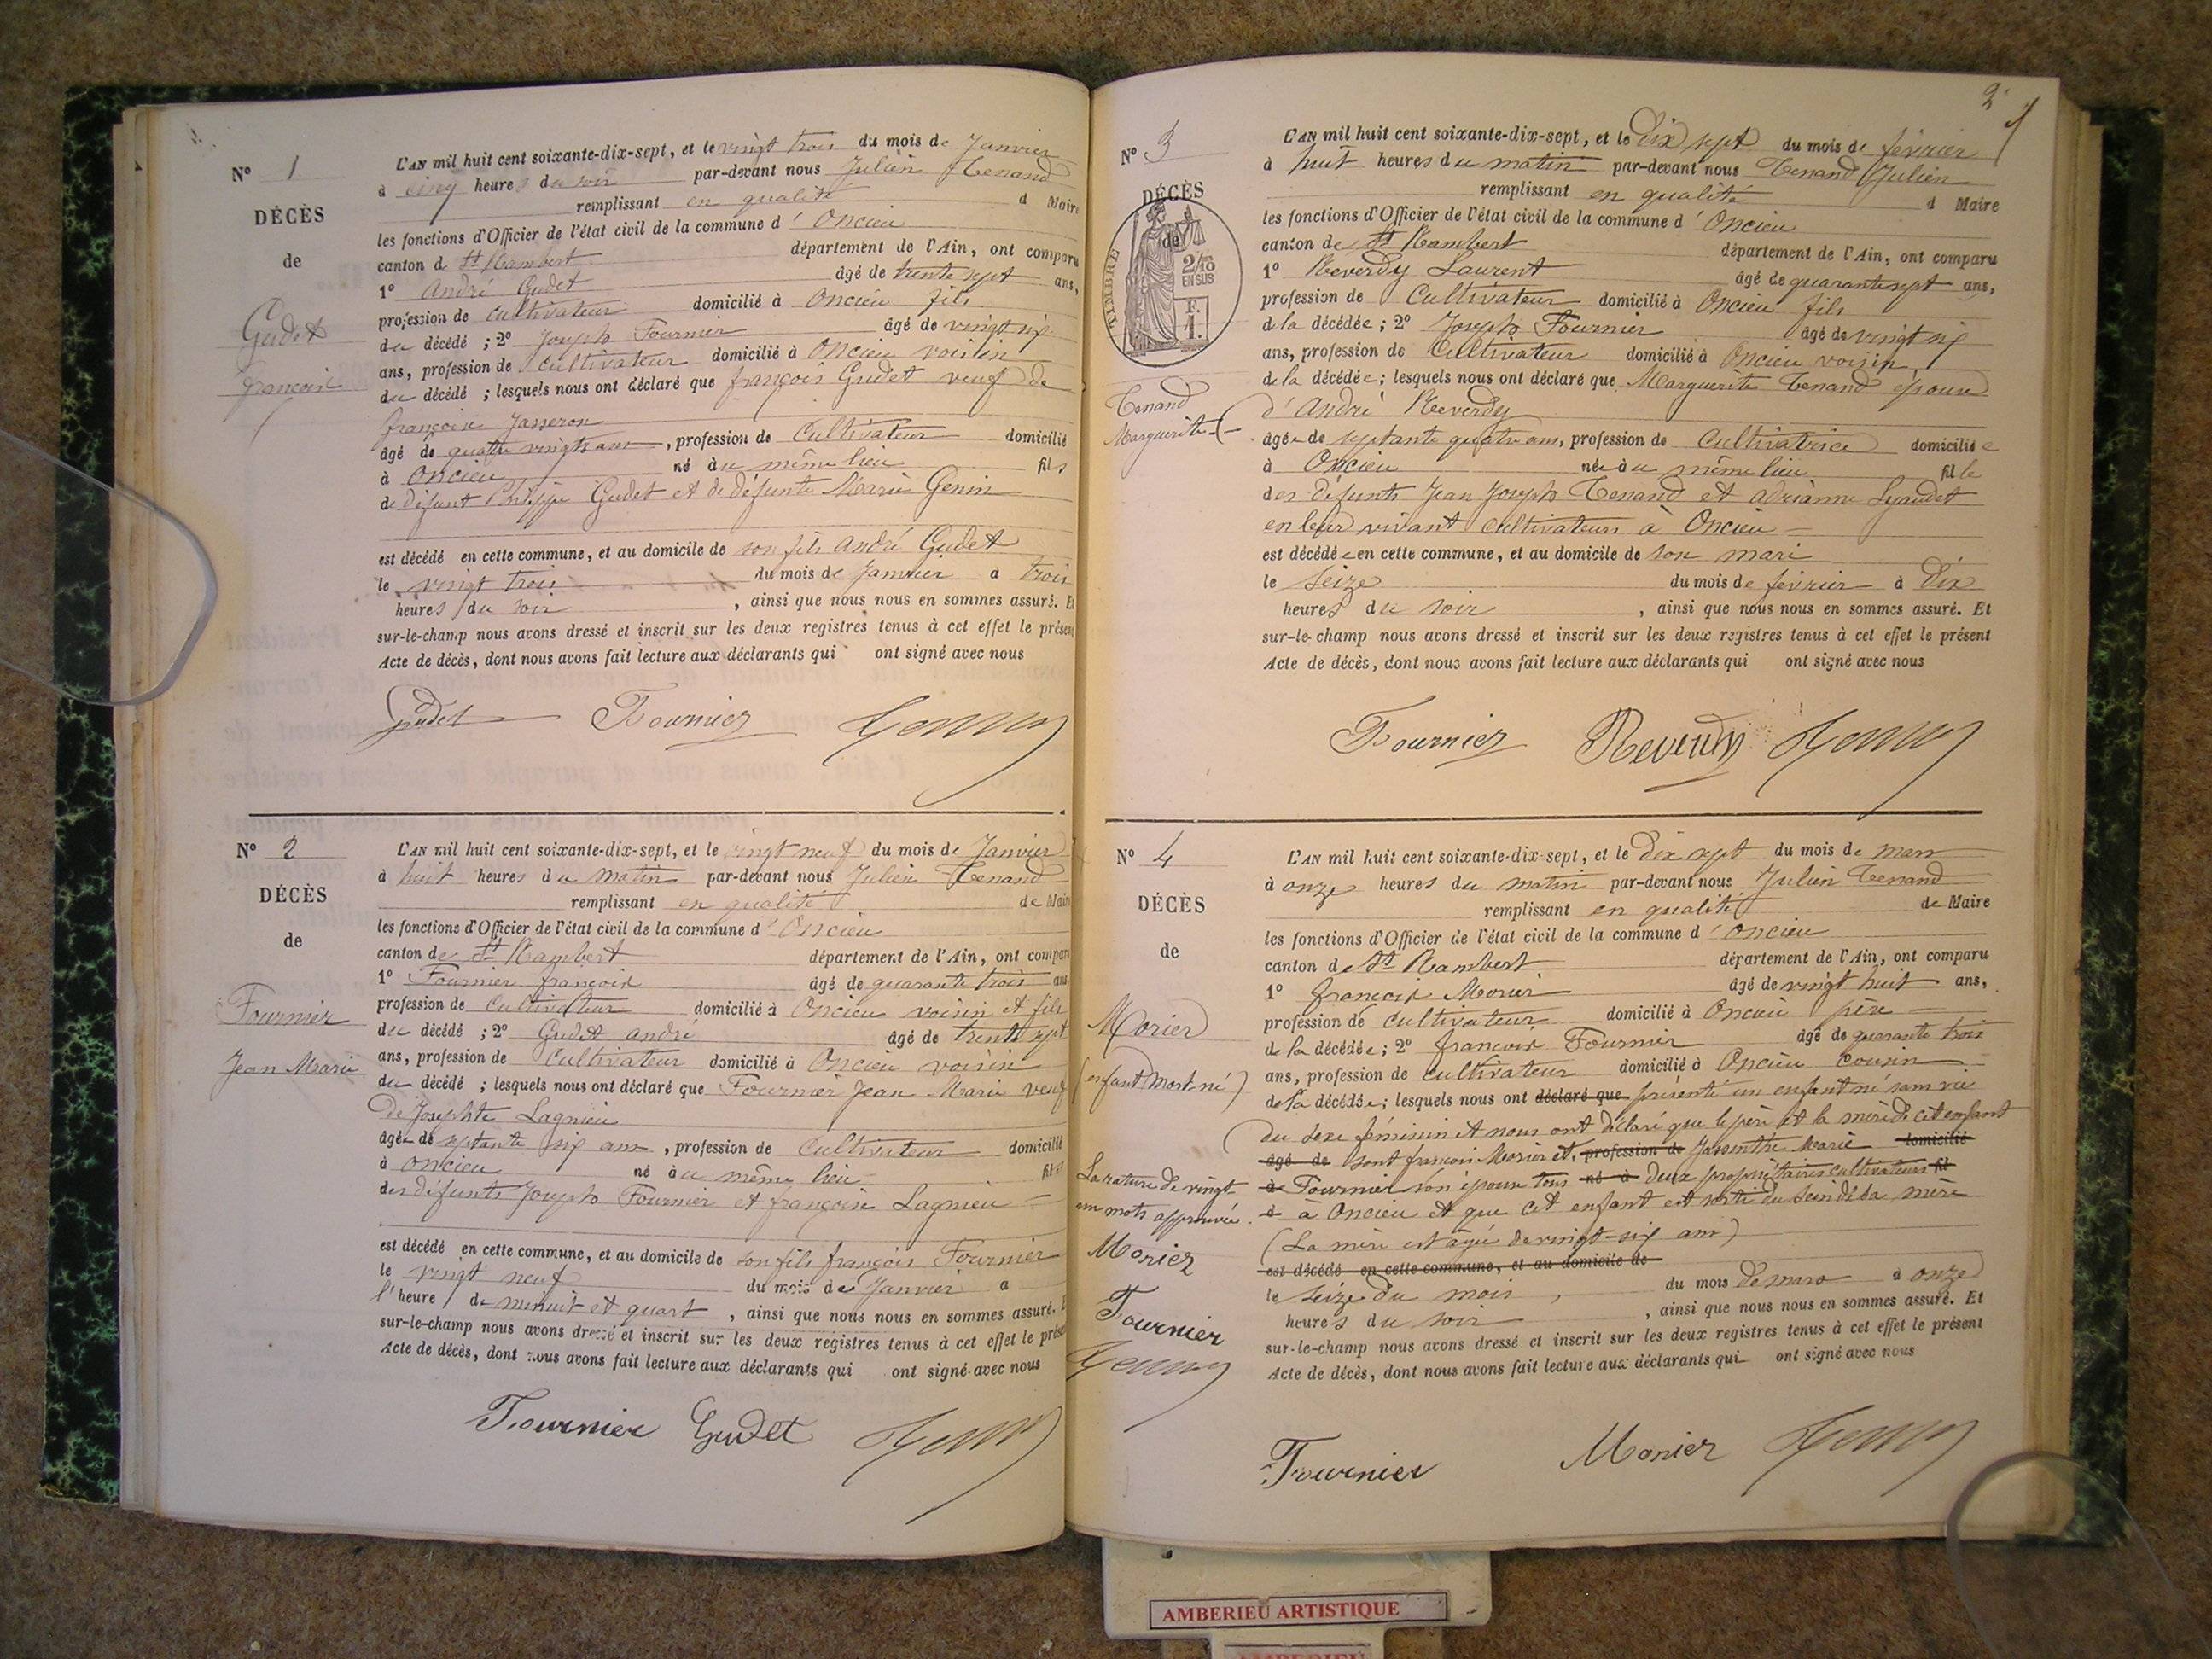 N° 1
DÉCÈS
de
Gudet
françois
L'AN mil huit cent soixante-dix-sept, et le vingt trois du mois de Janvier
à cinq heures du soir par-devant nous Julien Tenand
remplissant en qualité d Maire
les fonctions d'Officier de l'état civil de la commune d' Oncieu
canton d St Rambert département de l'Ain, ont comparu
1° André Gudet âgé de trente sept ans,
profession de cultivateur domicilié à Oncieu fils
du décédé ; 2° Joseph Fournier âgé de vingt six
ans, profession de cultivateur domicilié à Oncieu voisin
du décédé ; lesquels nous ont déclaré que françois Gudet veuf de
françoise Jasseron
âgé de quatre vingts ans, profession de Cultivateur domicilié
à Oncieu né àu même lieu fils
de défunt Philippe Gudet et de défunte Marie Genin
est décédé en cette commune, et au domicile de son fils André Gudet
le vingt trois du mois de Janvier à trois
heures du soir, ainsi que nous nous en sommes assuré. Et
sur-le-champ nous avons dressé et inscrit sur les deux registres tenus à cet effet le présent
Acte de décès, dont nous avons fait lecture aux déclarants qui ont signé avec nous
Gudet Fournier Tenand
N° 2
DÉCÈS
de
Fournier
Jean Marie
L'AN mil huit cent soixante-dix-sept, et le vingt neuf du mois de Janvier
à huit heures du matin par-devant nous Julien Tenand
remplissant en qualité de Maire
les fonctions d'Officier de l'état civil de la commune d' Oncieu
canton de St Rambert département de l'Ain, ont comparu
1° Fournier françois âgé de quarante trois ans
profession de Cultivateur domicilié à Oncieu voisin et fils
du décédé ; 2° Gudet andré âgé de trente sept
ans, profession de Cultivateur domicilié à Oncieu voisin
du décédé ; lesquels nous ont déclaré que Fournier Jean Marie veuf
de Josephte Lagnieu
âgé de septante six ans, profession de Cultivateur domicilié
à Oncieu né àu même lieu fils
des défunts Joseph Fournier et françoise Lagnieu
est décédé en cette commune, et au domicile de son fils françois Fournier
le vingt neuf du mois de Janvier a
l'heure de minuit et quart, ainsi que nous nous en sommes assuré. E
sur-le-champ nous avons dressé et inscrit sur les deux registres tenus à cet effet le prése
Acte de décès, dont nous avons fait lecture aux déclarants qui ont signé avec nous
Fournier Gudet Tenand
2
N° 3
DÉCÈS
de
TIMBRE
2/10 EN SUS
F. 1.
Tenand
Marguerite
L'AN mil huit cent soixante-dix-sept, et le dix sept du mois de février
à huit heures du matin par-devant nous Tenand Julien
remplissant en qualité d Maire
les fonctions d'Officier de l'état civil de la commune d' Oncieu
canton de St Rambert département de l'Ain, ont comparu
1° Reverdy Laurent âgé de quarante sept ans,
profession de Cultivateur domicilié à Oncieu fils
de la décédée ; 2° Joseph Fournier âgé de vingt six
ans, profession de Cultivateur domicilié à Oncieu voisin
de la décédée ; lesquels nous ont déclaré que Marguerite Tenand épouse
d'André Reverdy
âgée de septante quatre ans, profession de Cultivatrice domiciliée
à Oncieu née àu même lieu fille
des défunts Jean Joseph Tenand et adrianne Lyaudet
en leur vivant cultivateurs à Oncieu
est décédée en cette commune, et au domicile de son mari
le seize du mois de février à dix
heures du soir, ainsi que nous nous en sommes assuré. Et
sur-le-champ nous avons dressé et inscrit sur les deux registres tenus à cet effet le présent
Acte de décès, dont nous avons fait lecture aux déclarants qui ont signé avec nous
Fournier Reverdy Tenand
N° 4
DÉCÈS
de
Morier
(enfant Mort-né)
La rature de vingt
un mots approuvée.
Morier
Fournier
Tenand
L'AN mil huit cent soixante-dix-sept, et le dix sept du mois de mars
à onze heures du matin par-devant nous Julien Tenand
remplissant en qualité de Maire
les fonctions d'Officier de l'état civil de la commune d' Oncieu
canton de St Rambert département de l'Ain, ont comparu
1° françois Morier âgé de vingt huit ans,
profession de cultivateur domicilié à Oncieu père
de la décédée ; 2° françois Fournier âgé de quarante trois
ans, profession de cultivateur domicilié à Oncieu cousin
de la décédée ; lesquels nous ont déclaré que présenté un enfant né sans vie
du sexe féminin et nous ont déclaré que le père et la mère de cet enfant
âgé de sont françois Morier et, profession de Jassenthe Marie domicilié
à Fournier son épouse tous né à deux propriétaires cultivateurs fil
d à Oncieu et que cet enfant est sorti du sein de sa mère
(La mère est âgée de vingt-six ans)
est décédé en cette commune, et au domicile de
le seize du mois, du mois de mars à onze
heures du soir, ainsi que nous nous en sommes assuré. Et
sur-le-champ nous avons dressé et inscrit sur les deux registres tenus à cet effet le présent
Acte de décès, dont nous avons fait lecture aux déclarants qui ont signé avec nous
Fournier Morier Tenand
AMBERIEU ARTISTIQUE
AMBERIEU